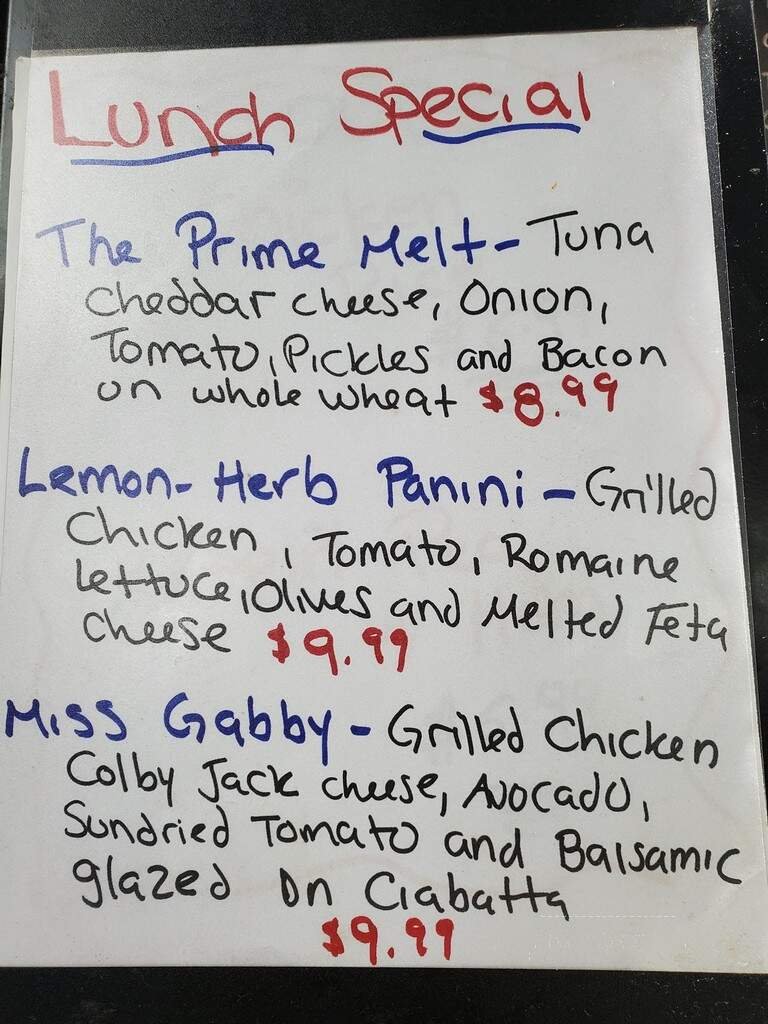 Lunch Special
The Prime Melt - Tuna
cheddar cheese, Onion,
Tomato, Pickles and Bacon
on whole wheat $8.99
Lemon-Herb Panini - Grilled
Chicken, Tomato, Romaine
lettuce, Olives and Melted Feta
cheese $9.99
Miss Gabby - Grilled Chicken
Colby Jack cheese, Avocado,
Sundried Tomato and Balsamic
glazed on Ciabatta
$9.99